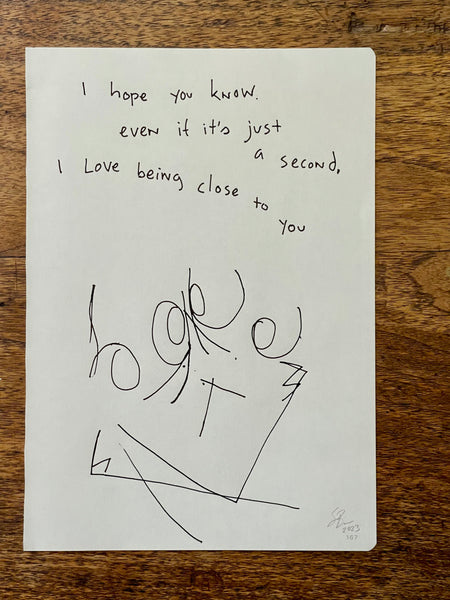 I hope you know.
even if it's just
a second,
I Love being close to
you
2023